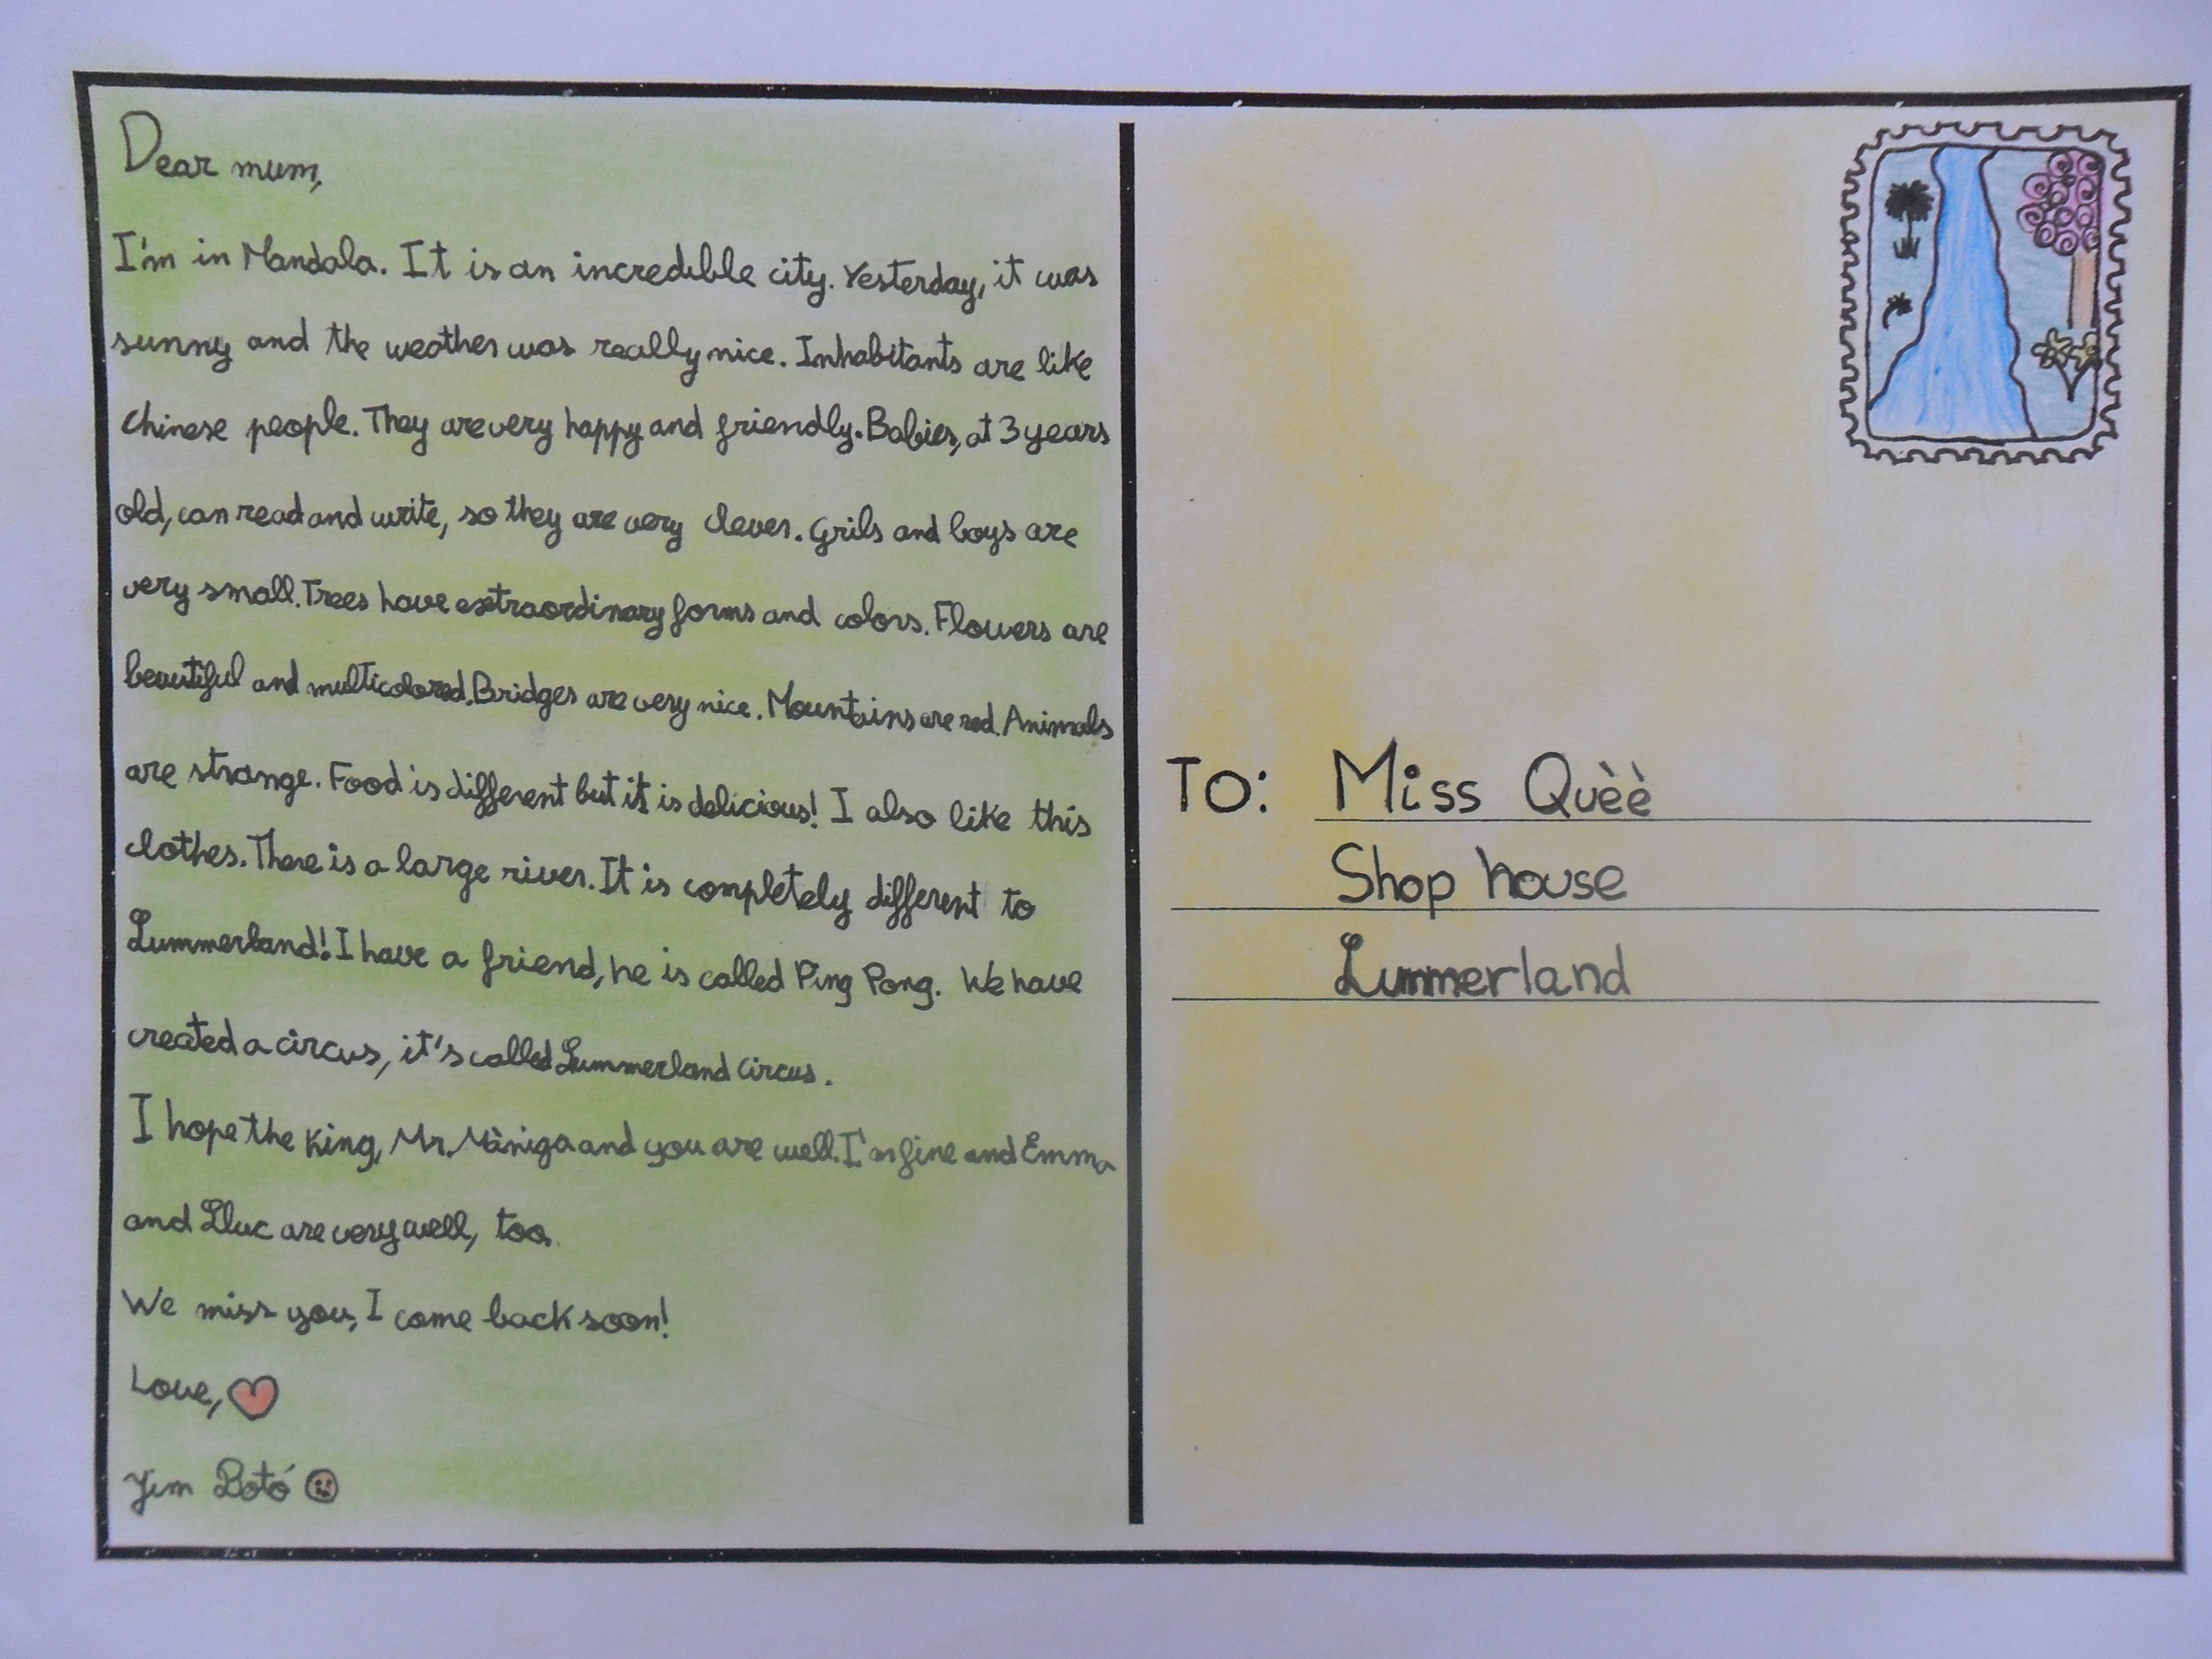 Dear mum,
I'm in Mandala. It is an incredible city. Yesterday, it was
sunny and the weather was really nice. Inhabitants are like
Chinese people. They are very happy and friendly. Babies, at 3 years
old, can read and write, so they are very clever. Grils and boys are
very small. Trees have extraordinary forms and colors. Flowers are
beautiful and multicolored. Bridges are very nice. Mountains are red. Animals
are strange. Food is different but it is delicious! I also like this
clothes. There is a large river. It is completely different to
Lummerland! I have a friend, he is called Ping Pong. We have
created a circus, it's called Lummerland Circus.
I hope the King, Mr. Màniga and you are well. I'm fine and Emma
and Lluc are very well, too.
We miss you, I come back soon!
Love,
Jim Botó
TO: Miss Quèè
Shop house
Lummerland